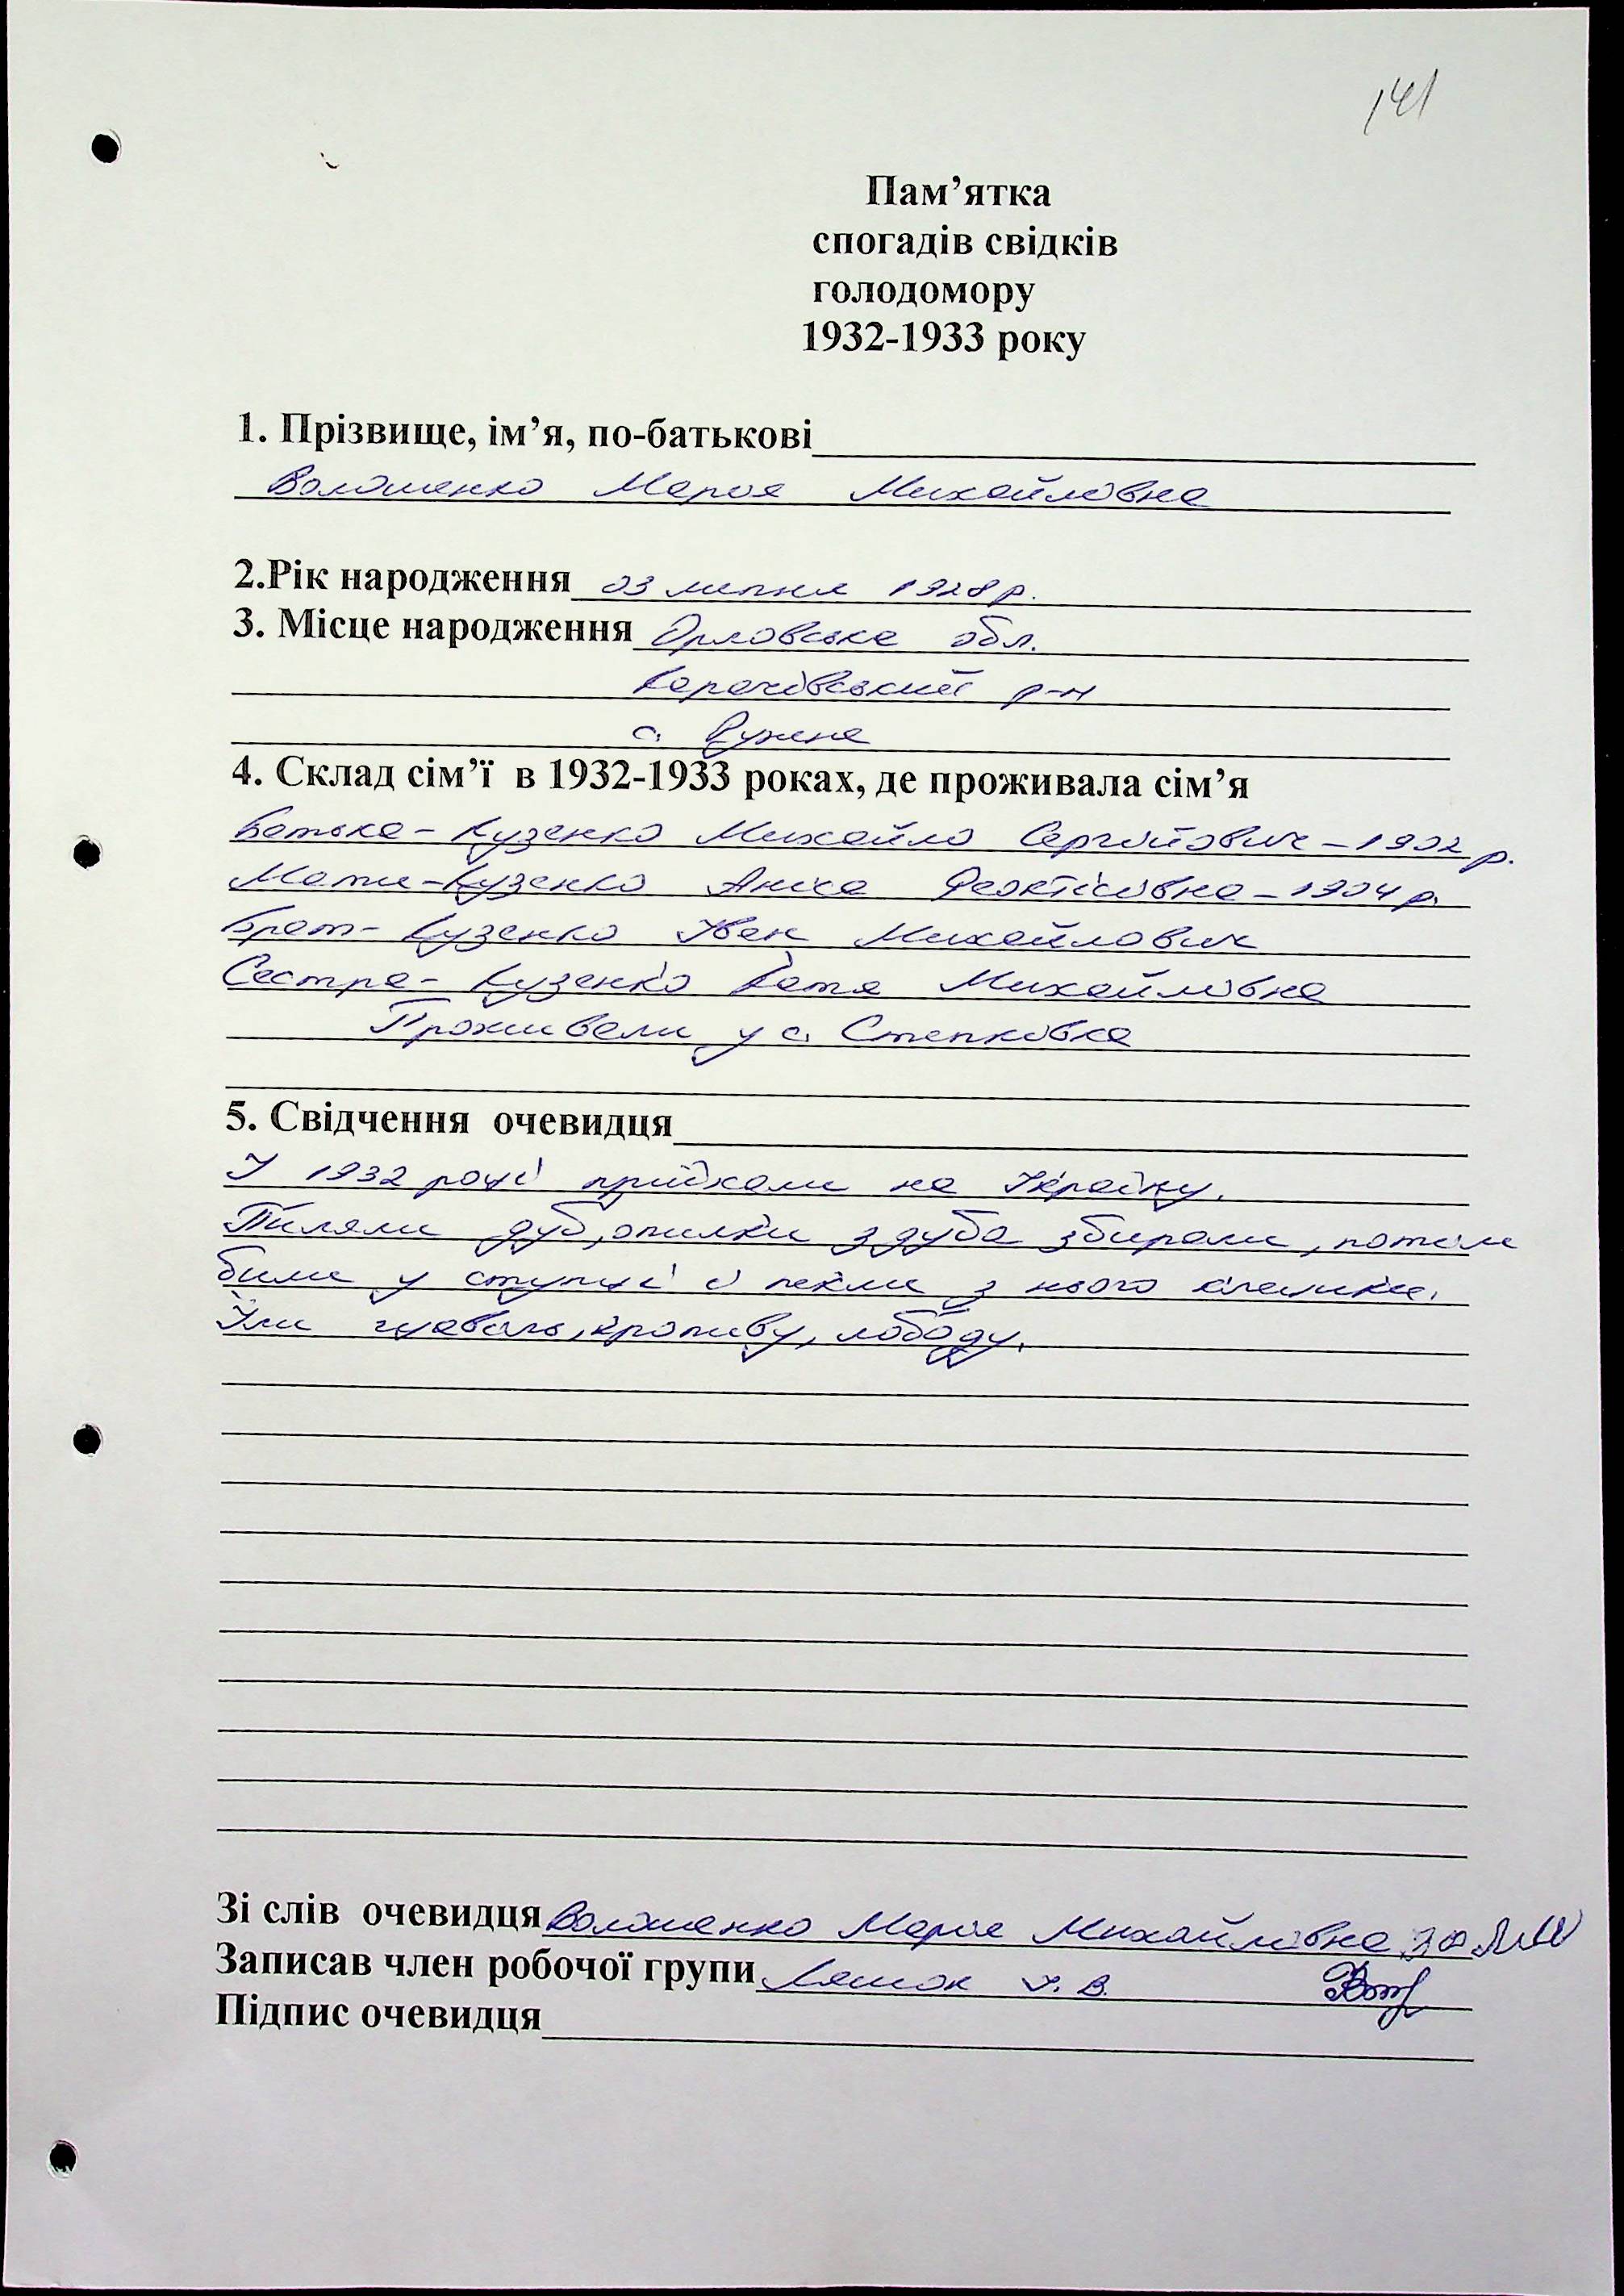 141
Пам’ятка
спогадів свідків
голодомору
1932-1933 року
1. Прізвище, ім’я, по-батькові
Волошенко Марія Михайлівна
2.Рік народження 03 липня 1928 р.
3. Місце народження Орловська обл.
Карачівський р-н
с. Ружне
4. Склад сім’ї в 1932-1933 роках, де проживала сім’я
Батько - Кузенко Михайло Сергійович - 1902 р.
Мати - Кузенко - 1904 р.
Брат - Кузенко Іван Михайлович
Сестра - Кузенко Катя Михайлівна
Проживали у с. Степківка
5. Свідчення очевидця
У 1932 році приїхали на Україну.
Пиляли дуб, опилки з дуба збирали, потім
били у ступці і пекли з нього
Їли щавель, кропиву, лободу.
Зі слів очевидця Волошенко Марія Михайлівна
Записав член робочої групи
Підпис очевидця